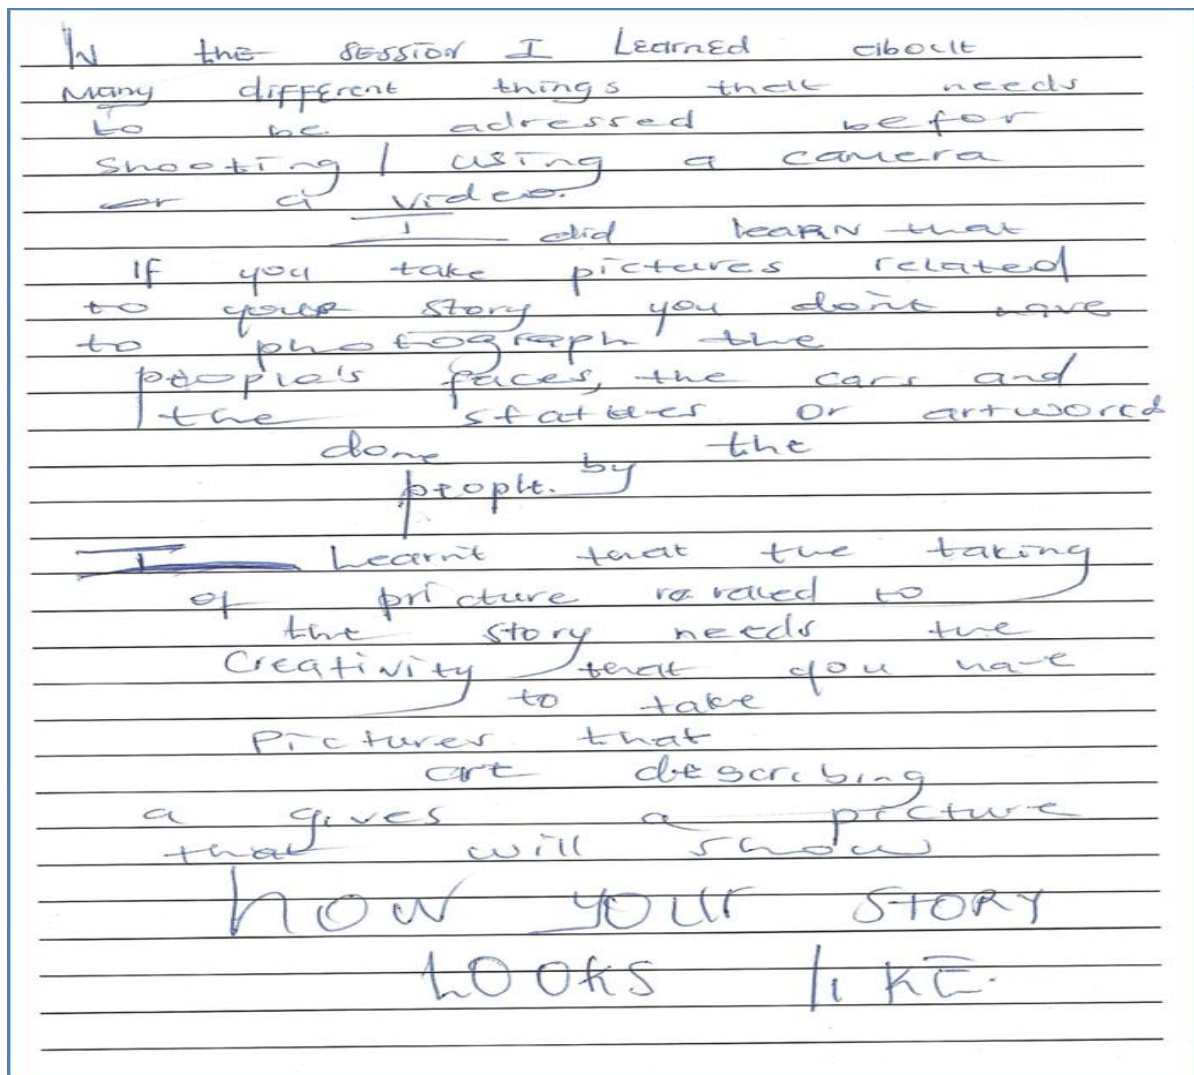 IN the SESSION I Learned about
Many different things that needs
to be adressed befor
shooting / using a camera
or a video.
I did leaRN that
If you take pictures related
to your story you don't have
to photograph the
people's faces, the cars and
the statues or artwork
done by the
people.
I Learnt that the taking
of pricture related to
the story needs the
Creativity that you have
to take
Pictures that
are describing
a gives a picture
that will show
HOW YOUR STORY
LOOKS lIKE.